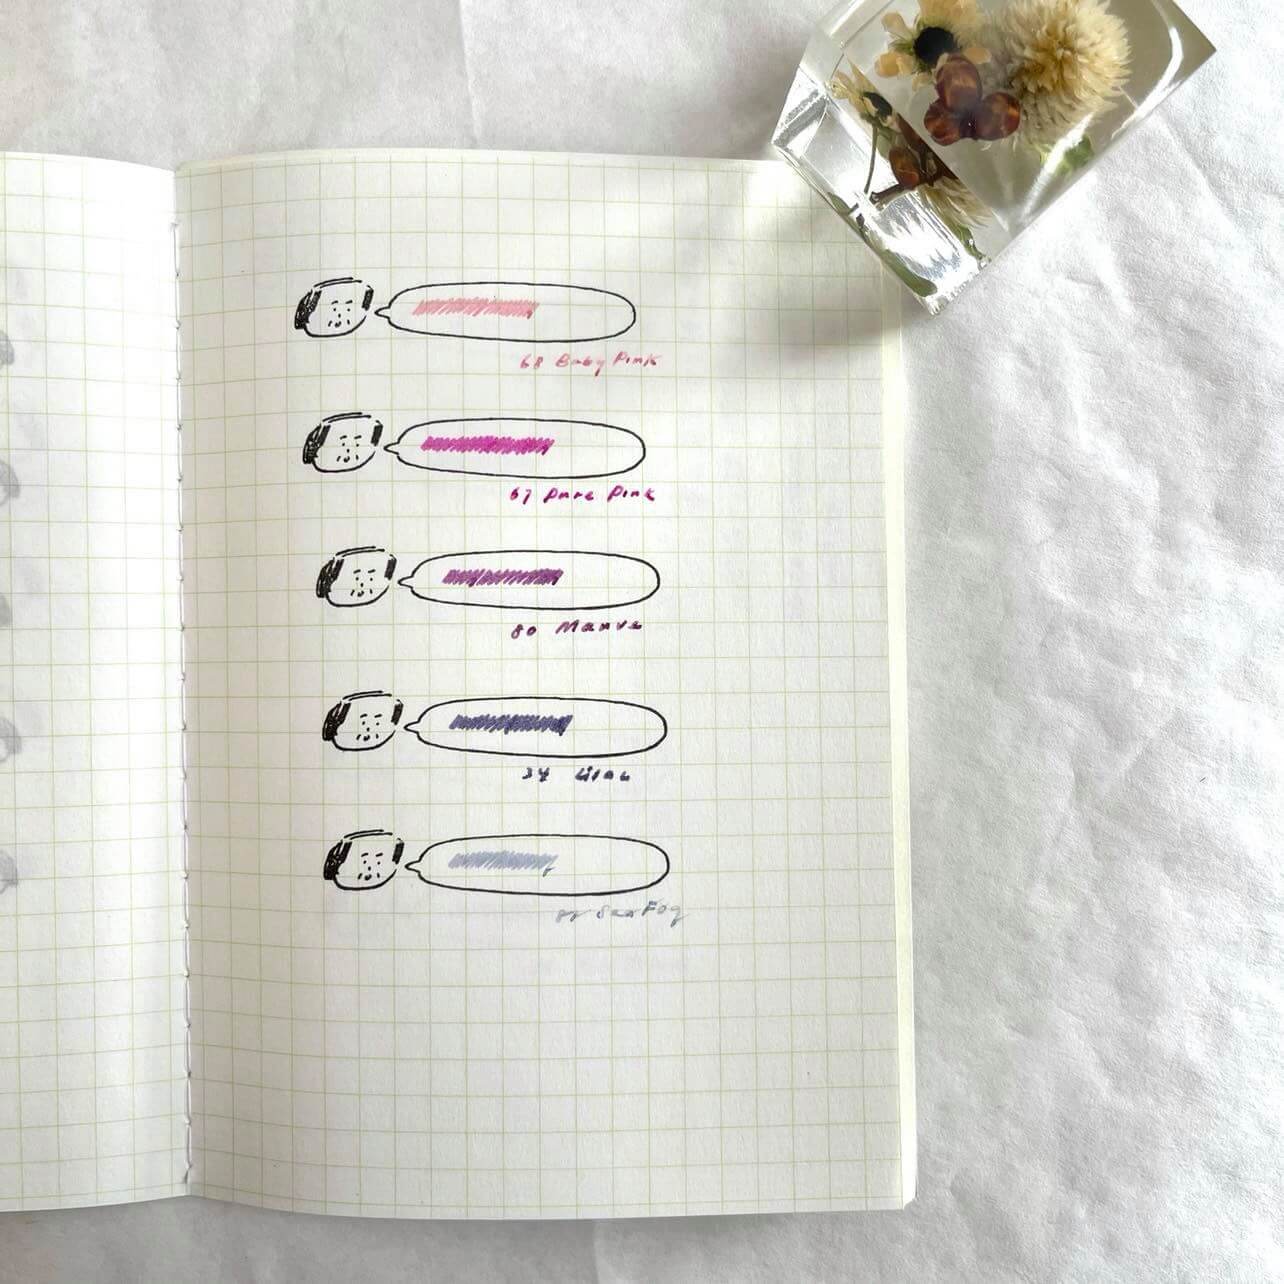 68 Baby Pink
67 Pure Pink
80 Mauve
34 Lilac
Sea Fog